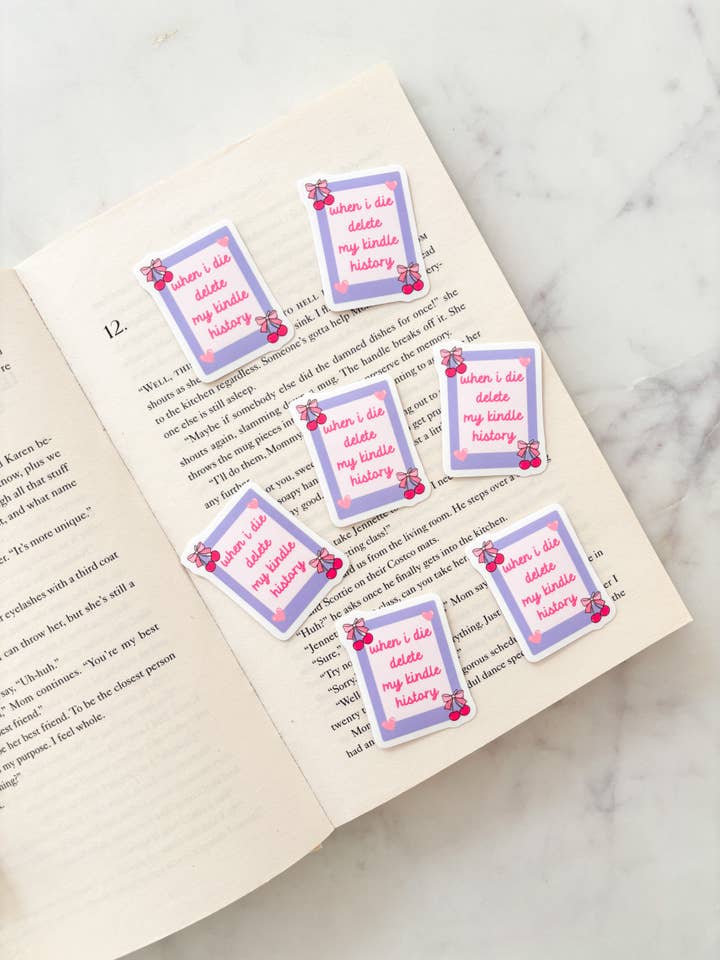 re
Karen be-
now, plus we
all that stuff
, and what name
“It’s more unique.”
eyelashes with a third coat
can throw her, but she’s still a
say, “Uh-huh.”
,” Mom continues. “You’re my best
friend.”
be her best friend. To be the closest person
my purpose. I feel whole.
12.
“WELL,
TO HELL
ead
sink. I
ery-
shouts as she
the damned dishes for once!” she
to the kitchen regardless. Someone’s gotta help Mom
one else is still asleep.
“Maybe if somebody else did
shouts again, slamming
a mug. The handle breaks off it. She
throws the mug pieces into
preserve the memory.
“I’ll do them, Mommy
ting to
her
any further.
or you, swee
out
soapy han
get pru
my good.
a li
take Jennette
ting class!”
us from the living room. He steps over a
and Scottie on their Costco mats.
“Huh?” he asks once he finally gets into the kitchen.
“Jennette
class, can you take her
Mom say
in
“Sure,”
erything. Just
r I
“Try no
the
“Sorry,
“Well
gorous sched
twenty
ful dance spe
Mom
had an
when i die
delete
my kindle
history
when i die
delete
my kindle
history
when i die
delete
my kindle
history
when i die
delete
my kindle
history
when i die
delete
my kindle
history
when i die
delete
my kindle
history
when i die
delete
my kindle
history